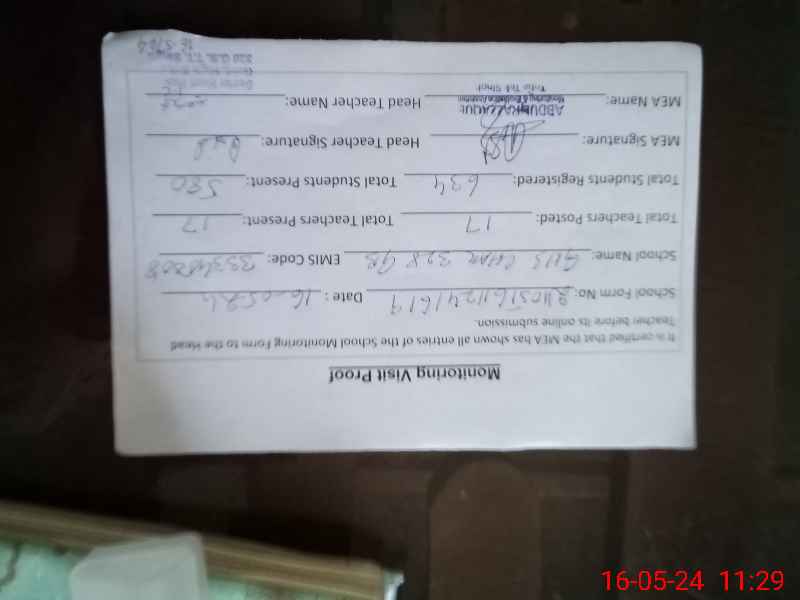 Monitoring Visit Proof
It is certified that the MEA has shown all entries of the School Monitoring Form to the Head
Teacher before its online submission.
School Form No: Date : 16-05-24
School Name: GHS CHAK 328 GB EMIS Code:
Total Teachers Posted: 17 Total Teachers Present: 17
Total Students Registered: 634 Total Students Present: 580
MEA Signature: Head Teacher Signature:
MEA Name: ABDUL Head Teacher Name:
Monitoring & Evaluation Assistant
16-05-24 11:29